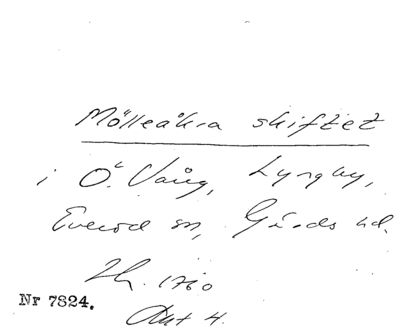 Mölleåkra skiftet
i Ö. Vång, Lyngby,
Everöd sn, Gärds hd.
Lh. 1710
Akt 4.
Nr 7824.